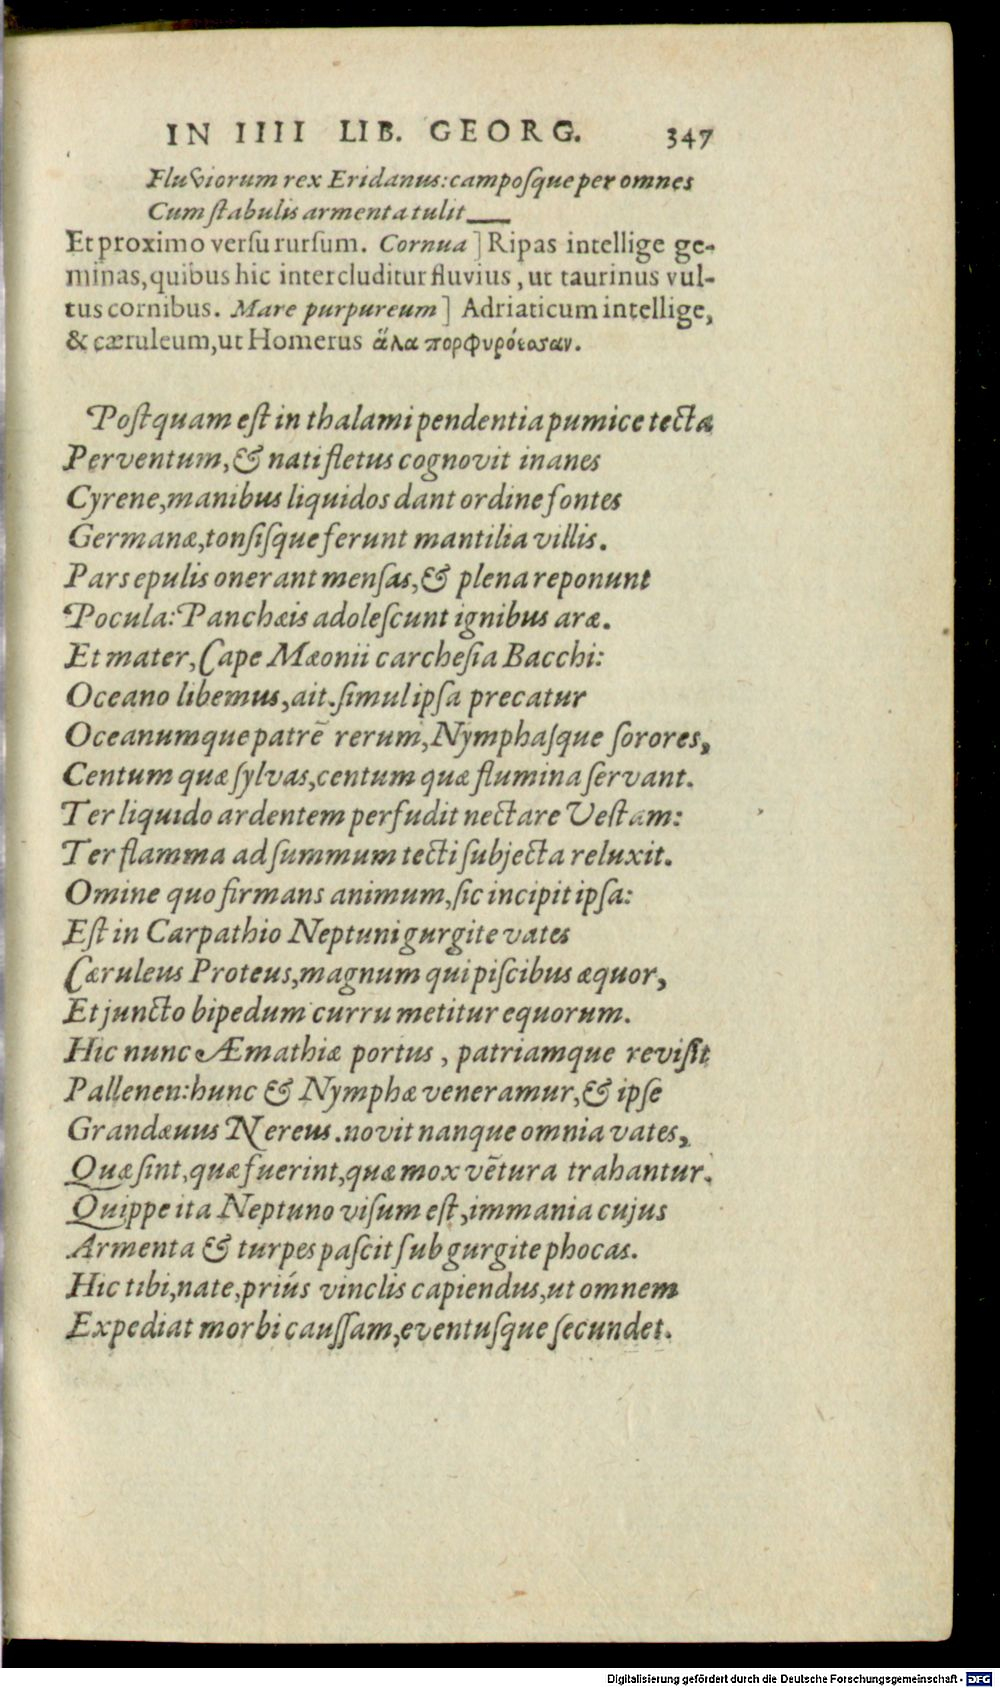 IN IIII LIB. GEORG. 347
Fluviorum rex Eridanus: campoſque per omnes
Cum ſtabulis armenta tulit___
Et proximo verſu rurſum. Cornua ] Ripas intellige ge-
minas, quibus hic intercluditur fluvius, ut taurinus vul-
tus cornibus. Mare purpureum ] Adriaticum intellige,
& cæruleum, ut Homerus ἅλα
Poſtquam eſt in thalami pendentia pumice tecta
Perventum, & nati fletus cognovit inanes
Cyrene, manibus liquidos dant ordine fontes
Germanæ, tonſiſque ferunt mantilia villis.
Pars epulis onerant menſas, & plena reponunt
Pocula: Panchæis adoleſcunt ignibus aræ.
Et mater, Cape Mæonii carcheſia Bacchi:
Oceano libemus, ait. ſimul ipſa precatur
Oceanumque patrē rerum, Nymphaſque ſorores,
Centum quæ ſylvas, centum quæ flumina ſervant.
Ter liquido ardentem perfudit nectare Veſtam:
Ter flamma ad ſummum tecti ſubjecta reluxit.
Omine quo firmans animum, ſic incipit ipſa:
Eſt in Carpathio Neptuni gurgite vates
Cæruleus Proteus, magnum qui piſcibus æquor,
Et juncto bipedum curru metitur equorum.
Hic nunc Æmathiæ portus, patriamque reviſit
Pallenen: hunc & Nymphæ veneramur, & ipſe
Grandæuus Nereus. novit nanque omnia vates,
Quæ ſint, quæ fuerint, quæ mox vētura trahantur.
Quippe ita Neptuno viſum eſt, immania cujus
Armenta & turpes paſcit ſub gurgite phocas.
Hic tibi, nate, priús vinclis capiendus, ut omnem
Expediat morbi cauſſam, eventuſque ſecundet.
Digitalisierung gefördert durch die Deutsche Forschungsgemeinschaft - DFG